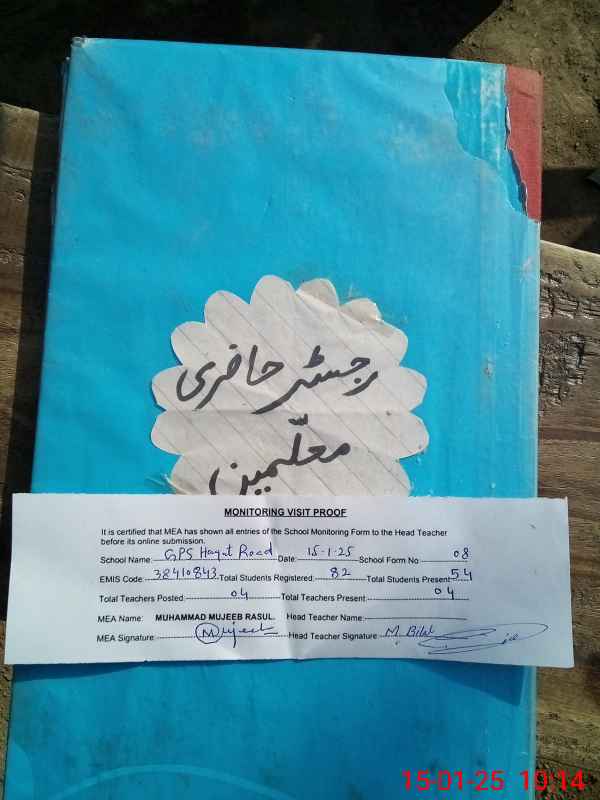 رجسٹر حاضری
معلّمین
MONITORING VISIT PROOF
It is certified that MEA has shown all entries of the School Monitoring Form to the Head Teacher
before its online submission.
School Name: GPS Hayat Road Date: 15-1-25 School Form No 08
EMIS Code: 38410843 Total Students Registered: 82 Total Students Present 54
Total Teachers Posted: 04 Total Teachers Present: 04
MEA Name: MUHAMMAD MUJEEB RASUL. Head Teacher Name:
MEA Signature: Mujeeb Head Teacher Signature: M. Bilal
15-01-25 10:14